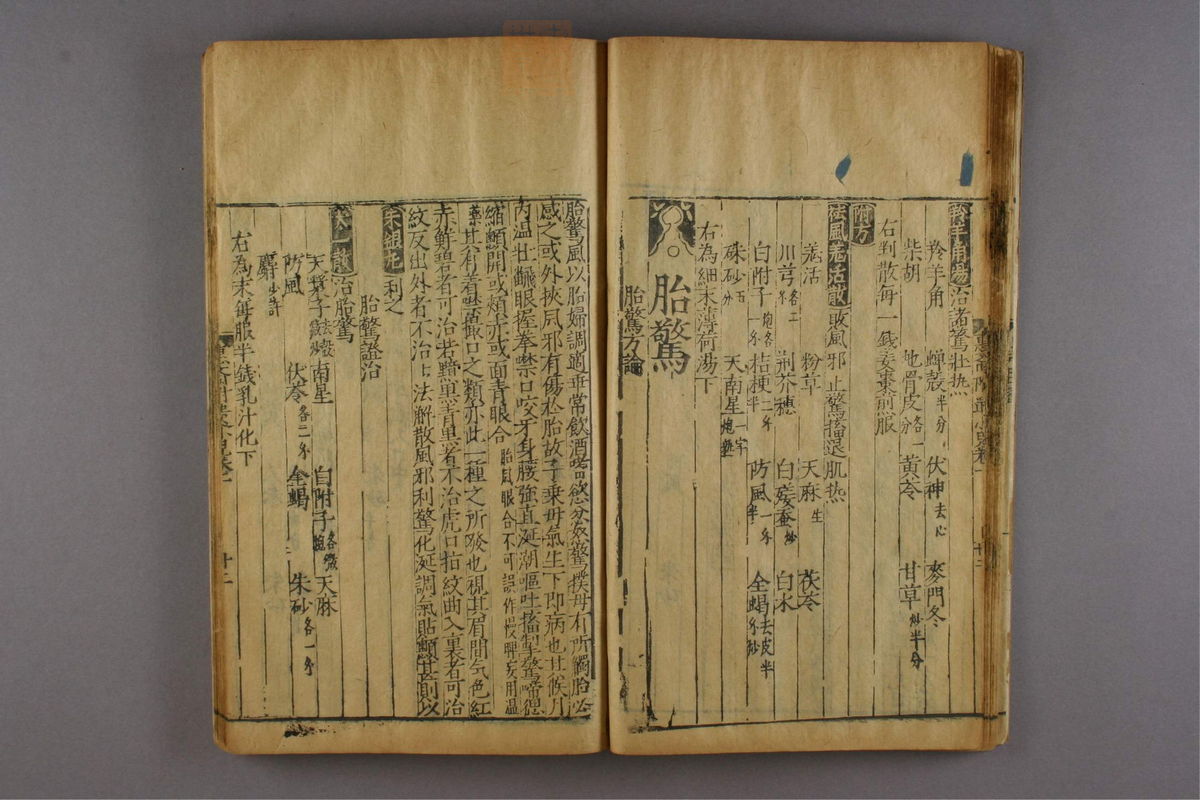 羚羊角湯治諸驚壯热
羚羊角 蟬殼半分 伏神去心 麥門冬
柴胡 地骨皮各一分 黃芩 甘草炒半分
右剉散每一錢姜棗煎服
附方
祛風羗活散散風邪止驚搐退肌热
羗活 粉草 天麻生 茯苓
川芎各二 荆芥穗 白殭蚕炒 白朮
白附子炮各一 桔梗二分半 防風一分半 全蝎去皮半分炒
硃砂五分 天南星一字
右為細末薄荷湯下
胎驚
胎驚方論
胎驚風以胎婦調適乖常飲酒嗜慾忿怒驚撲母有所觸胎必
感之或外挾風邪有傷於胎故子乗母氣生下即病也其候月
内温壮飜眼握拳禁口咬牙身腰強直涎潮嘔吐搐掣驚啼腮
縮顖開或頰赤或面青眼合胎風眼合不可誤作慢脾妄用温
藥其有着噤撮口之類亦此一種之所發也視其眉間气色紅
赤鮮碧者可治若黯黑青黒者不治虎口指紋曲入裏者可治
紋反出外者不治占法解散風邪利驚化涎調氣貼顖甚則以
朱銀丸利之
胎驚證治
太一散治胎驚
天漿子去殼 南星 白附子各微炮 天麻
防風 伏苓各二分 全蝎 朱砂各一分
麝少許
右為末每服半錢乳汁化下
十二